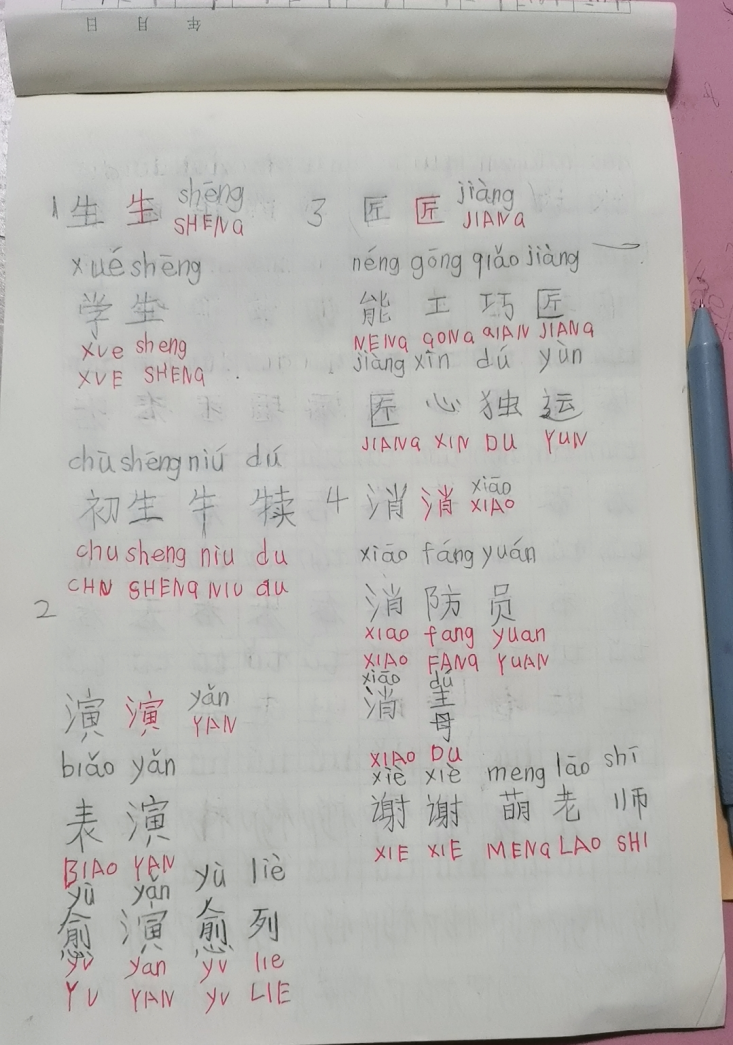 年 月 日
1 生 生 shēng
SHENG
xué shēng
学 生
xue sheng
XUE SHENG
chū shēng niú dú
初 生 牛 犊
chu sheng niu du
CHU SHENG NIU du
2
演 演 yǎn
YAN
biǎo yǎn
表 演
BIAO YAN
yù yǎn yù liè
愈 演 愈 列
yu yan yu lie
YU YAN yu LIE
3 匠 匠 jiàng
JIANG
néng gōng qiǎo jiàng
能 工 巧 匠
NENG GONG QIAN JIANG
jiàng xīn dú yùn
匠 心 独 运
JIANG XIN DU YUN
4 消 消 xiāo
XIAO
xiāo fáng yuán
消 防 员
xiao fang yuan
XIAO FANG YUAN
xiāo dú
消 毒
XIAO DU
xiè xiè meng lāo shī
谢 谢 萌 老 师
XIE XIE MENG LAO SHI